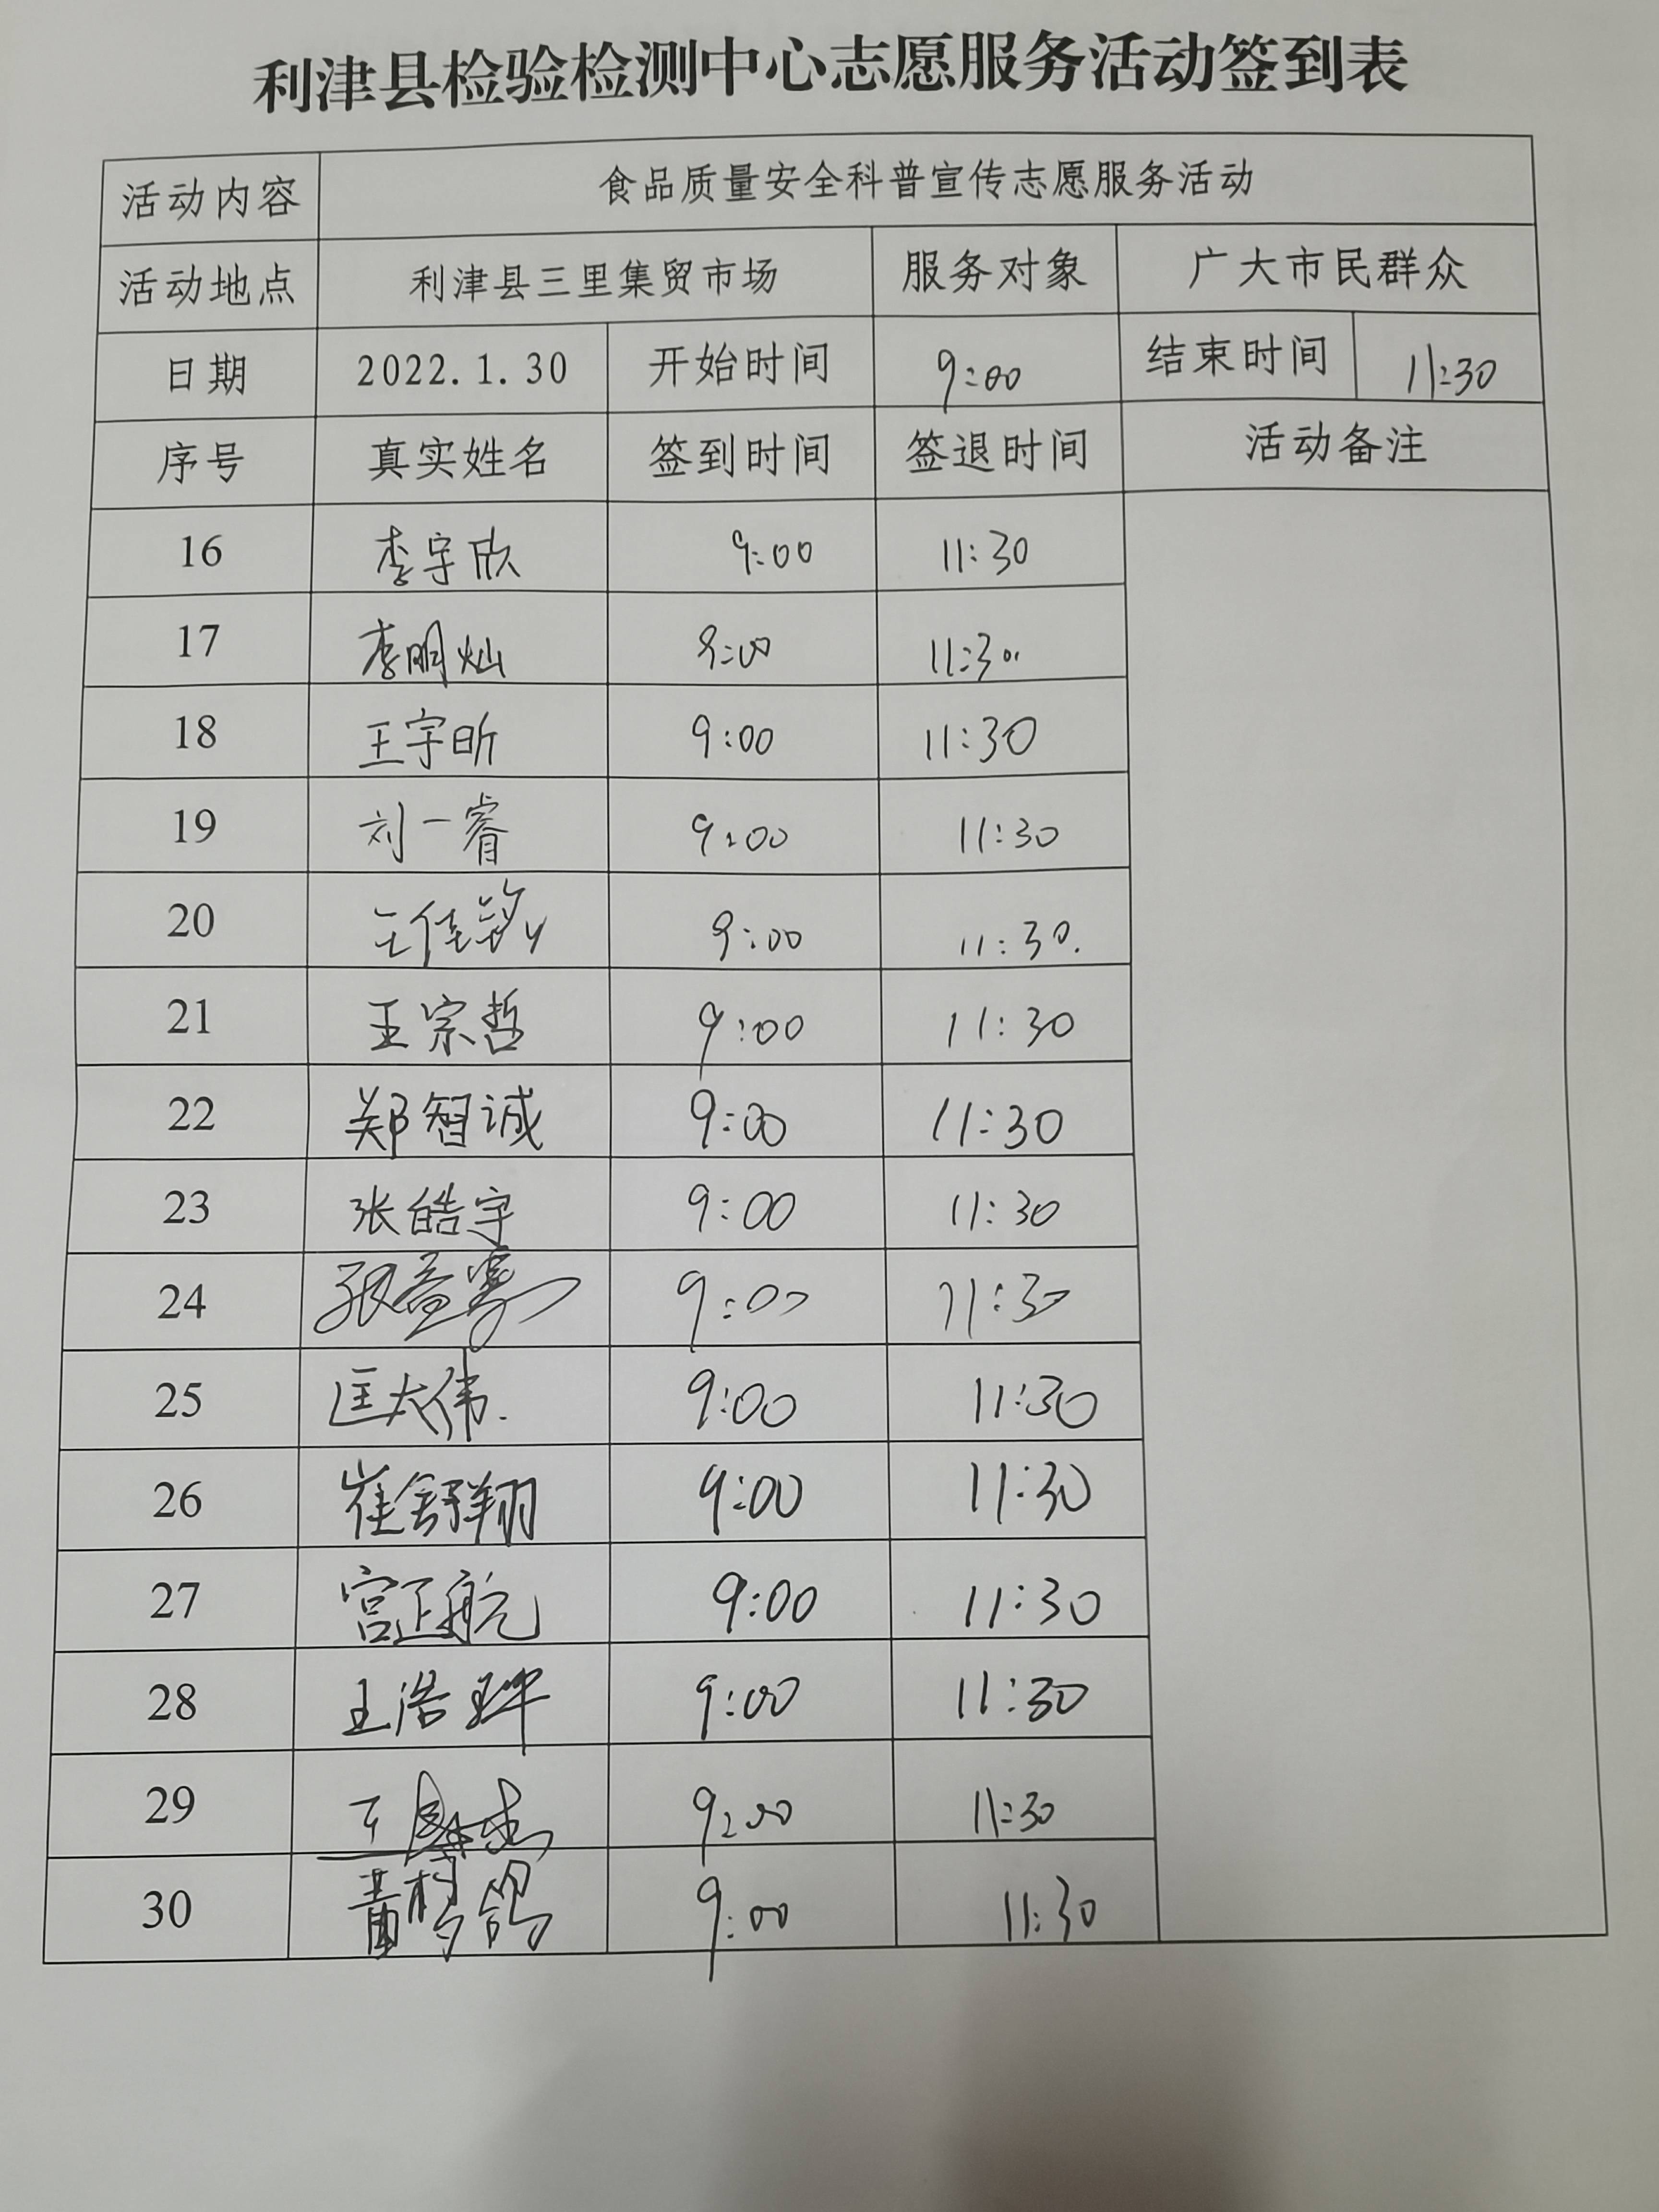 利津县检验检测中心志愿服务活动签到表
活动内容 食品质量安全科普宣传志愿服务活动
活动地点 利津县三里集贸市场 服务对象 广大市民群众
日期 2022.1.30 开始时间 9:00 结束时间 11:30
序号 真实姓名 签到时间 签退时间 活动备注
16 李宇欣 9:00 11:30
17 李明灿 9:00 11:30
18 王宇昕 9:00 11:30
19 刘一睿 9:00 11:30
20 王佳 9:00 11:30.
21 王宗哲 9:00 11:30
22 郑智诚 9:00 11:30
23 张皓宇 9:00 11:30
24 9:00 11:30
25 匡大伟. 9:00 11:30
26 崔舒翔 9:00 11:30
27 宫正航 9:00 11:30
28 王浩玶 9:00 11:30
29 9:00 11:30
30 9:00 11:30